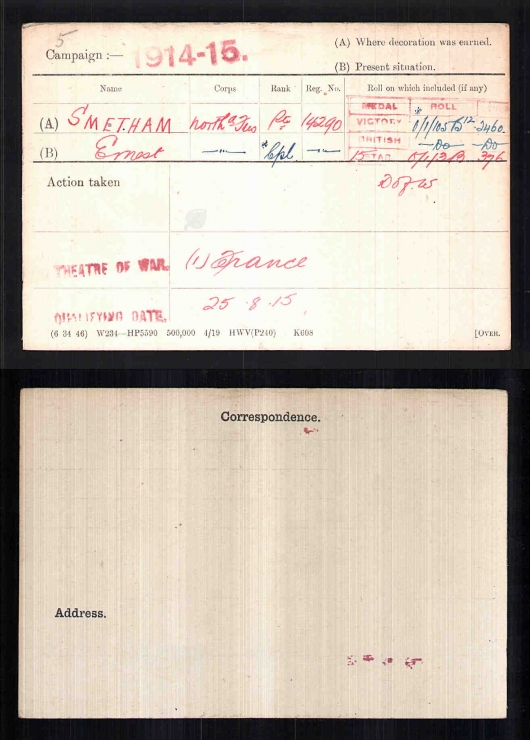 5
Campaign :— 1914-15.
(A) Where decoration was earned.
(B) Present situation.
Name Corps Rank Reg. No. Roll on which included (if any)
MEDAL ROLL
(A) SMETHAM North'd Fus Pte 14290 VICTORY O/1/105 B12 2460.
(B) Ernest —"— *Cpl —"— BRITISH —Do— —Do—
15 STAR O/1/2 B 376
Action taken D of W
THEATRE OF WAR. (1) France
QUALIFYING DATE. 25.8.15.
(6 34 46) W234—HP5590 500,000 4/19 HWV(P240) K608 [OVER.
Correspondence.
Address.